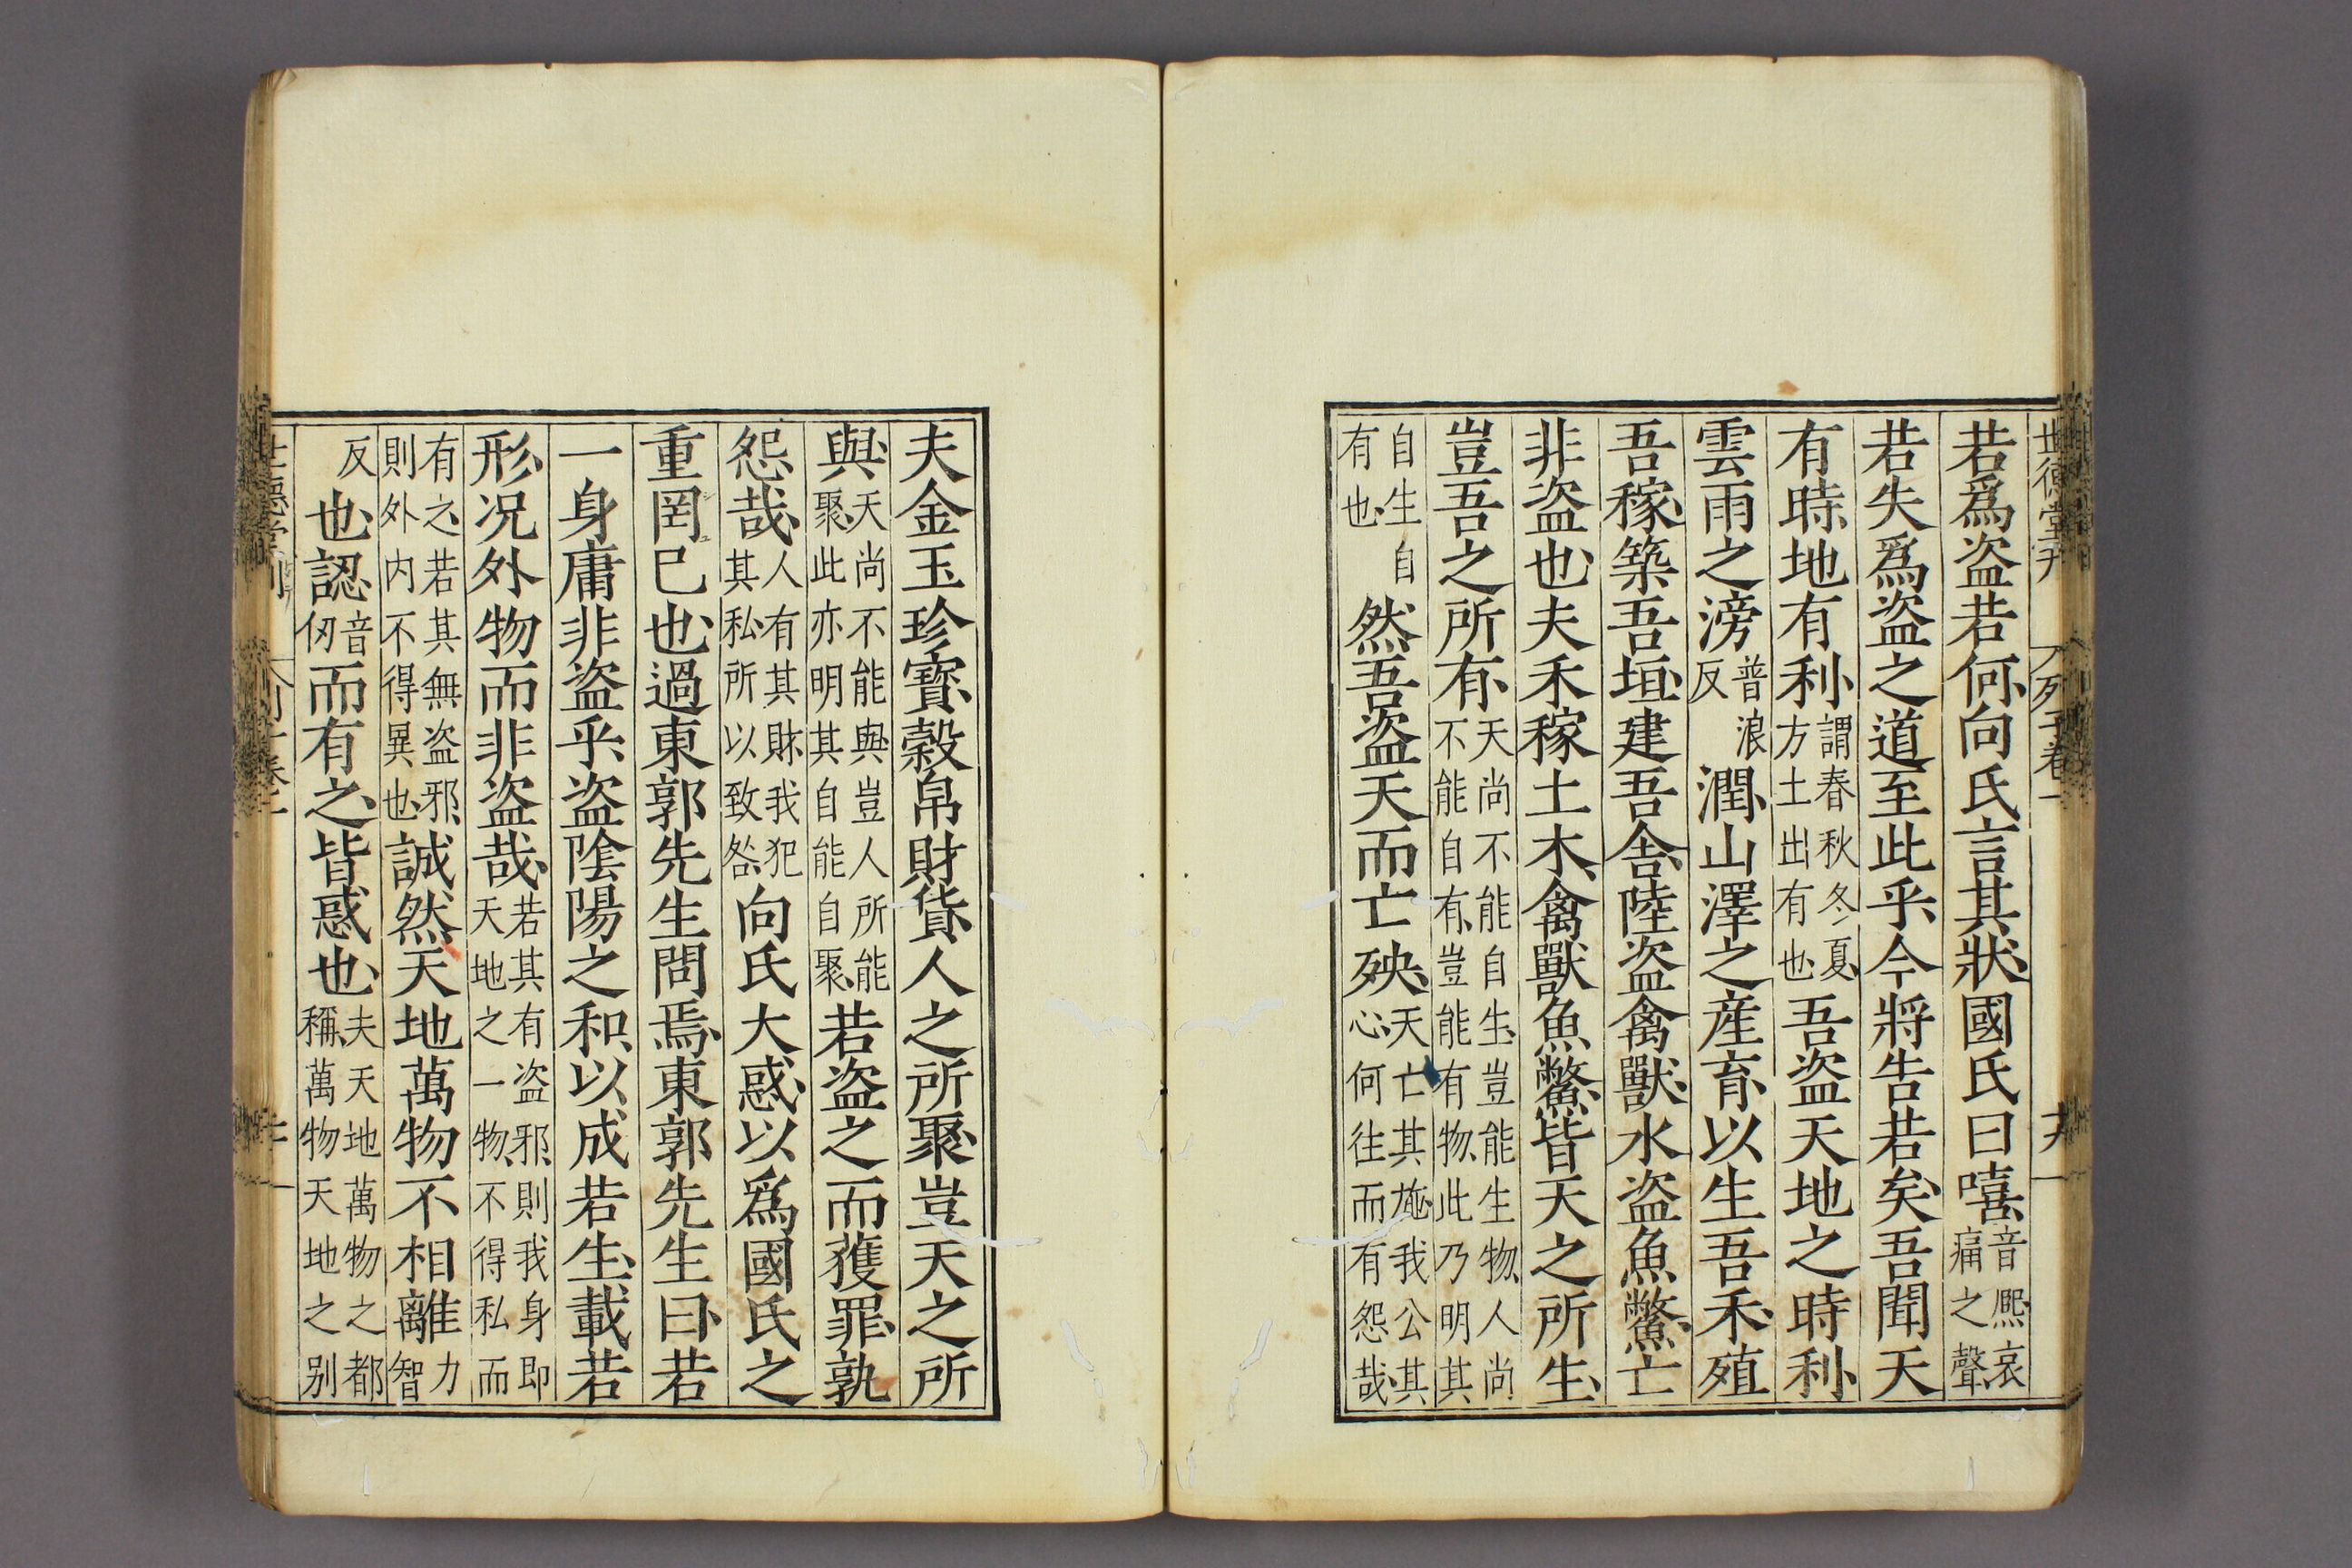 世德堂刊
列子卷一
十九
若爲盜若何向氏言其狀國氏曰嘻音熈哀痛之聲
若失爲盜之道至此乎今將告若矣吾聞天
有時地有利謂春秋冬夏方土出有也吾盜天地之時利
雲雨之滂普浪反潤山澤之産育以生吾禾殖
吾稼築吾垣建吾舍陸盜禽獸水盜魚鱉亡
非盜也夫禾稼土木禽獸魚鱉皆天之所生
豈吾之所有天尚不能自生豈能生物人尚不能自有豈能有物此乃明其
自生自有也然吾盜天而亡殃天亡其施我公其心何往而有怨哉
夫金玉珍寶穀帛財貨人之所聚豈天之所
與天尚不能與豈人所能聚此亦明其自能自聚若盜之而獲罪孰
怨哉人有其財我犯其私所以致咎向氏大惑以爲國氏之
重罔巳也過東郭先生問焉東郭先生曰若
一身庸非盜乎盜陰陽之和以成若生載若
形况外物而非盜哉若其有盜邪則我身即天地之一物不得私而
有之若其無盜邪則外内不得異也誠然天地萬物不相離力智
反也認音仞而有之皆惑也夫天地萬物之都稱萬物天地之别